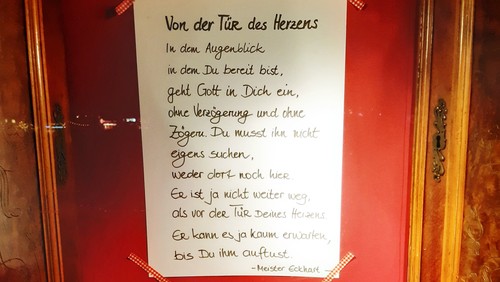 Von der Tür des Herzens
In dem Augenblick
in dem Du bereit bist,
geht Gott in Dich ein,
ohne Verzögerung und ohne
Zögern. Du musst ihn nicht
eigens suchen,
weder dort noch hier
Er ist ja nicht weiter weg,
als vor der Tür Deines Herzens
Er kann es ja kaum erwarten,
bis Du ihm auftust.
- Meister Eckhart -